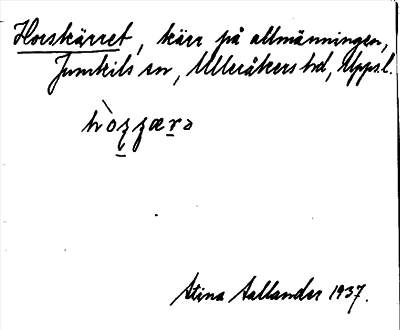 Horskärret, kärr på allmänningen,
Jumkils sn, Ulleråkers hd, Upps.l.
Stina Sallander 1937.